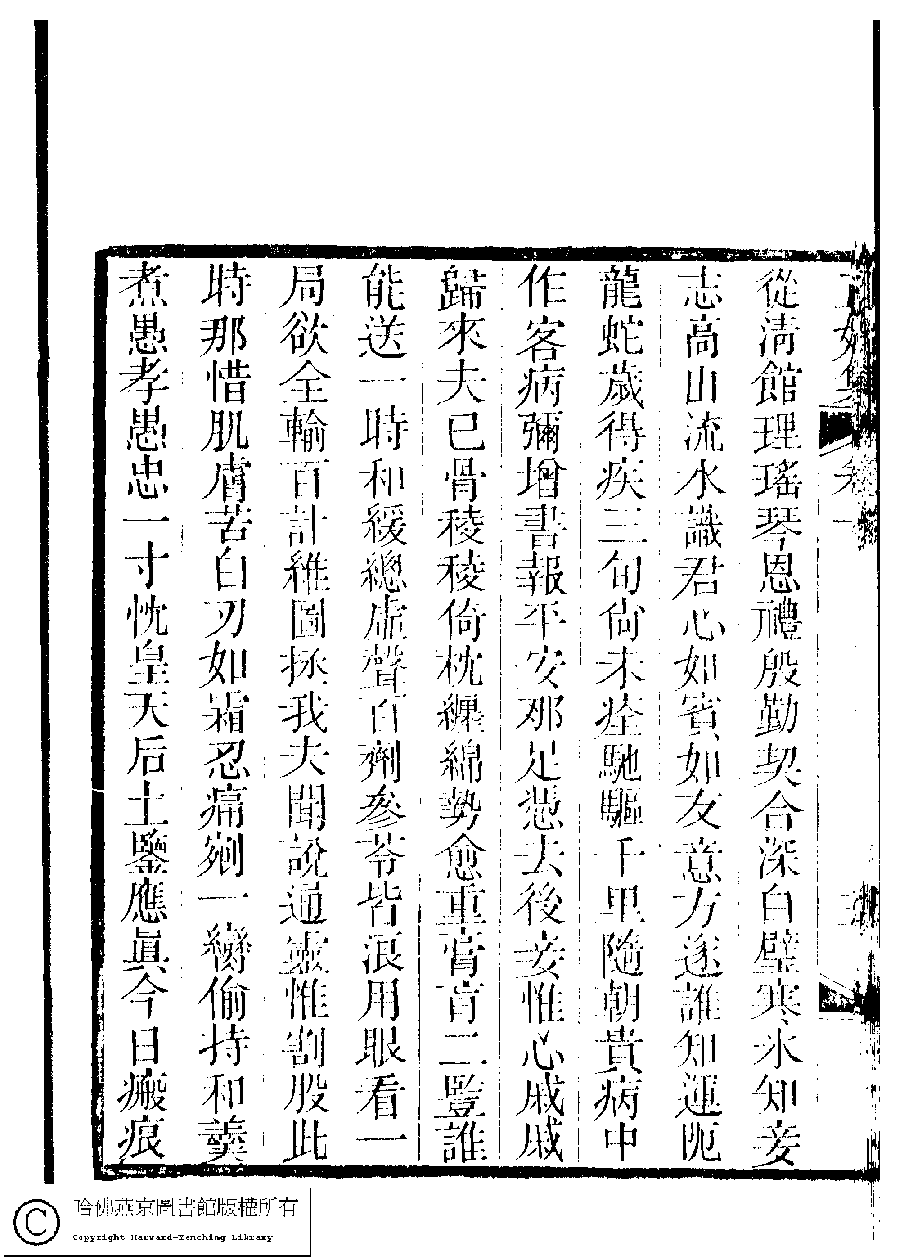 從淸館理瑤琴恩禮殷勤契合深白璧寒氷知妾
志高山流水識君心如賓如友意方遂誰知運阨
龍蛇歲得疾三旬尙未痊馳驅千里隨朝貴病中
作客病彌增書報平安那足慿去後妾惟心戚戚
歸來夫已骨稜稜倚枕纒綿勢愈重膏肓二豎誰
能送一時和緩總虛聲百劑參苓皆浪用眼看一
局欲全輸百計維圖拯我夫聞說通靈惟割股此
時那惜肌膚苦白刃如霜忍痛剜一臠偷持和羹
煮愚孝愚忠一寸忱皇天后土鑒應眞今日瘢痕
哈佛燕京圖書館版權所有
Copyright Harvard-Yenching Library